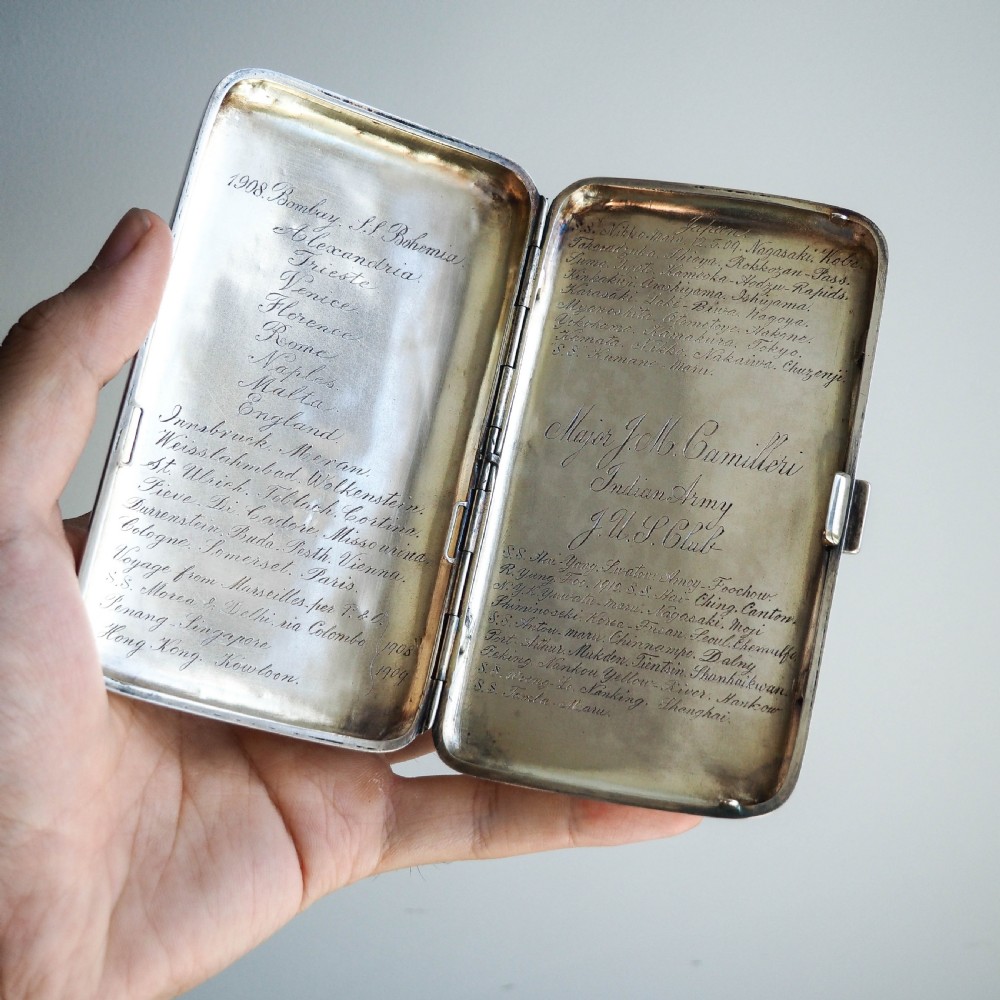 1908. Bombay. S.S Bohemia.
Alexandria.
Trieste
Venice
Florence
Rome
Naples
Malta.
England.
Innsbruck. Meran.
Weisslahmbad. Wolkenstein.
St. Ulrich. Toblach. Cortina.
Pieve. Di Cadore. Missourina.
Durrenstein. Buda-Pesth. Vienna.
Cologne. Somerset. Paris.
Voyage from Marseilles. per P. & O.
S.S. Morea & Delhi. via Colombo 1908
Penang. Singapore
Hong Kong. Kowloon. 1909
Japan
S.S. Nikko maru 09. Nagasaki. Kobe
Rokkozan-Pass.
Kameoka-Hodzu-Rapids.
Arashiyama. Ishiyama.
Karasaki. Lake-Biwa. Nagoya.
Myanoshita. Hakone.
Yokohama. Kamakura. Tokyo.
Nikko. Chuzenji.
S.S. Kumano-maru.
Major J. M. Camilleri
Indian Army
J.U.S. Club
S.S. Hai-Yang. Swatow. Amoy-Foochow.
1910. S.S. Hai-Ching. Canton.
maru. Nagasaki. Moji
Shiminoseki. Korea-Fusan. Seoul. Chemulpo
S.S. Antow maru. Chennampo. Dalny
Port. Arthur. Mukden. Tientsin. Shanhaikwan.
Peking. Nankou. Yellow-River. Hankow
S.S. Nanking. Shanghai.
S.S. maru.